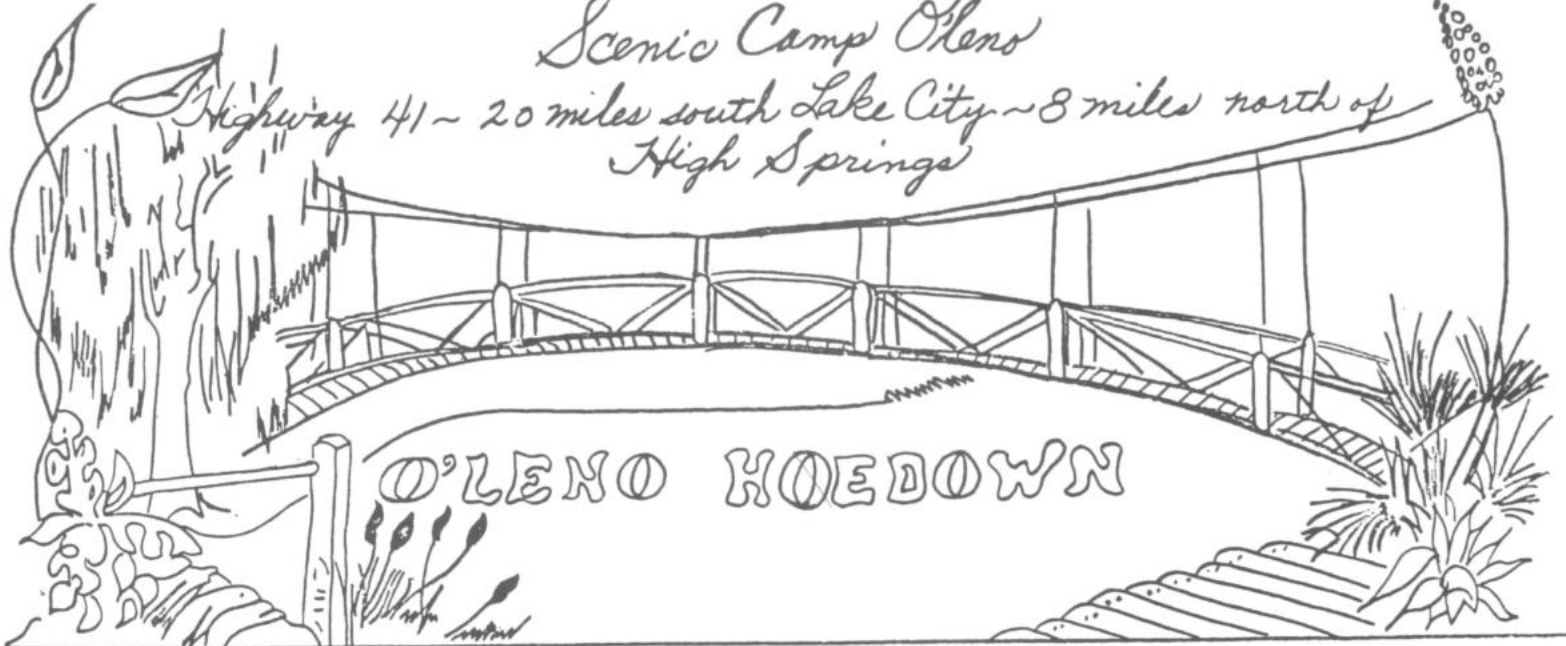 Scenic Camp O'leno
Highway 41 ~ 20 miles south Lake City ~ 8 miles north of
High Springs
O'LENO HOEDOWN